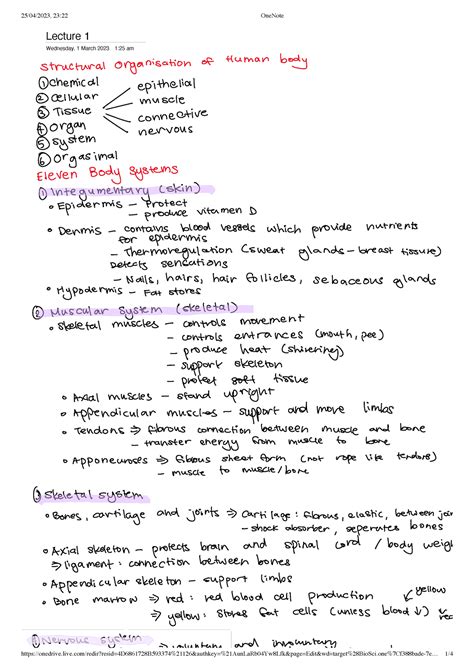 25/04/2023, 23:22 OneNote
Lecture 1
Wednesday, 1 March 2023, 1:25 am
Structural Organisation of Human body
① Chemical
② Cellular
③ Tissue
epithelial
muscle
connective
nervous
④ Organ
⑤ System
⑥ Orgasimal
Eleven Body Systems
① Integumentary (skin)
• Epidermis – Protect
– produce vitamin D
• Dermis – contains blood vessels which provide nutrients
for epidermis
– Thermoregulation (sweat glands – breast tissue)
Detects sensations
– Nails, hairs, hair follicles, sebaceous glands
• Hypodermis – Fat stores
② Muscular System (skeletal)
• Skeletal muscles – controls movement
– controls entrances (mouth, pee)
– produce heat (shivering)
– support skeleton
– protect soft tissue
• Axial muscles – stand upright
• Appendicular muscles – support and move limbs
• Tendons ⇒ fibrous connection between muscle and bone
– transfer energy from muscle to bone
• Aponeuroses ⇒ fibrous sheet form (not rope like tendons)
– muscle to muscle/bone
③ Skeletal system
• Bones, cartilage and joints ⇒ Cartilage: fibrous, elastic, between join
– shock absorber, seperates bones
• Axial skeleton – protects brain and spinal cord / body weigh
⇒ ligament: connection between bones
• Appendicular skeleton – support limbs
• Bone marrow ⇒ red: red blood cell production
⇒ yellow: stores fat cells (unless blood ↓)
yellow
↓ red
④ Nervous system
⇒ voluntary and involuntary
1/4